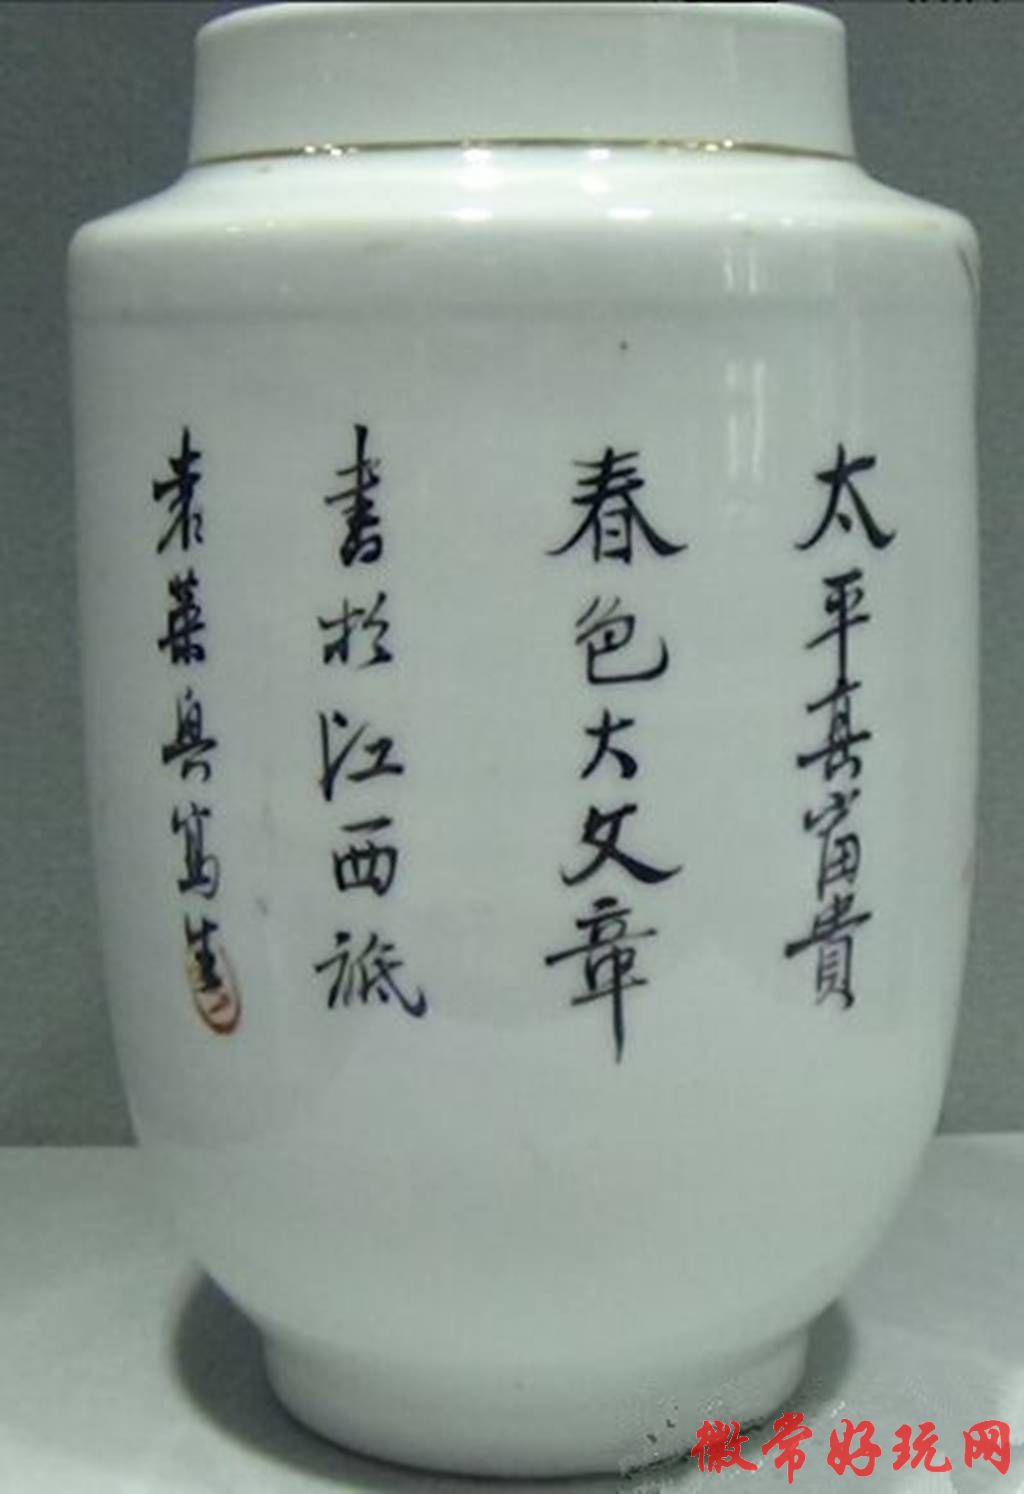 太平真富貴
春色大文章
書於江西
袁葉興寫生
徽常好玩网